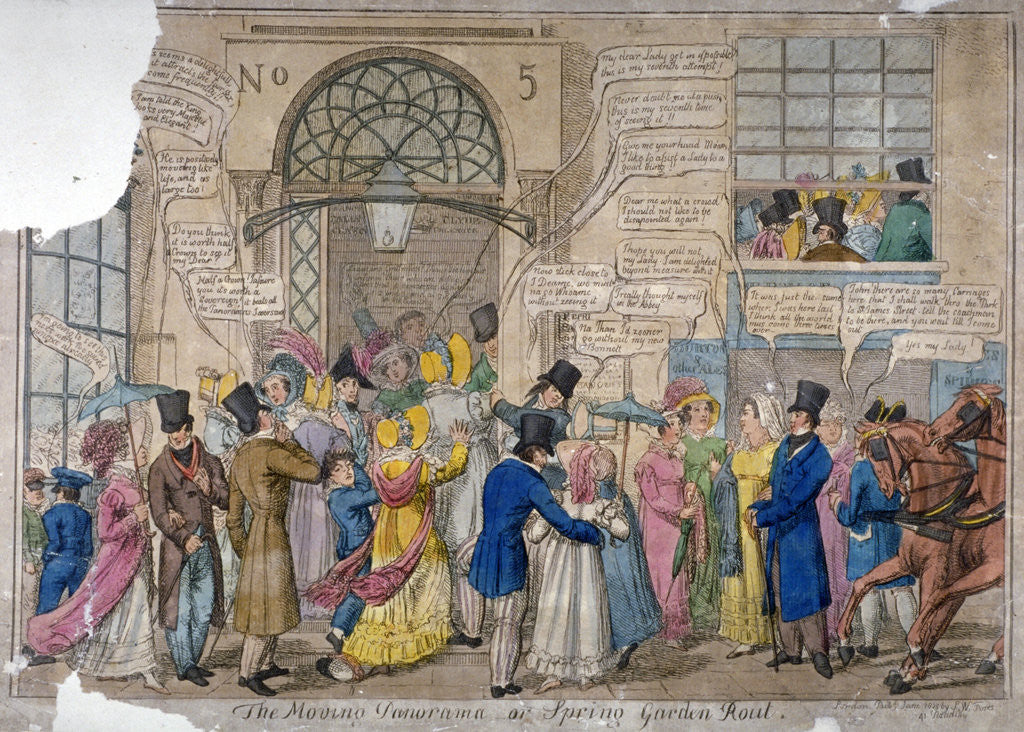 seems a delightfull
it attracts the
come frequently!!
I am told the King
looks very Majestic
and Elegant!
He is positively
moveing like
life, and as
large too!
Do you think
it is worth half
a Crown to see it
my Dear
Half a Crown! I assure
you it's worth a
Sovereign, it beats all
the Panoramas I ever saw
No 5
my dear Lady get in if possible
this is my seventh attempt!
Never doubt me at a push
this is my seventh time
of seeing it!!
Give me your hand Mam
I like to assist a Lady to a
good thing!
Dear me what a crowd
I should not like to be
disapointed again!
I hope you will not
my Lady. I am delighted
beyond measure with it
I really thought myself
in the Abbey
Now stick close to
I Deame, we must
na go whoame
without seeing it
Na Than I'd sooner
go without my new
Bonnett
It was just the same
when I was here last
I think all the world
mus come three times
over
John there are so many Carriages
here that I shall walk thro the Park
to St James Street. tell the coachman
to be there, and you wait till I come
out
Yes my Lady!
other ALES
SPIR
The Moving Panorama or Spring Garden Rout.
London Pub
41 Picadilly